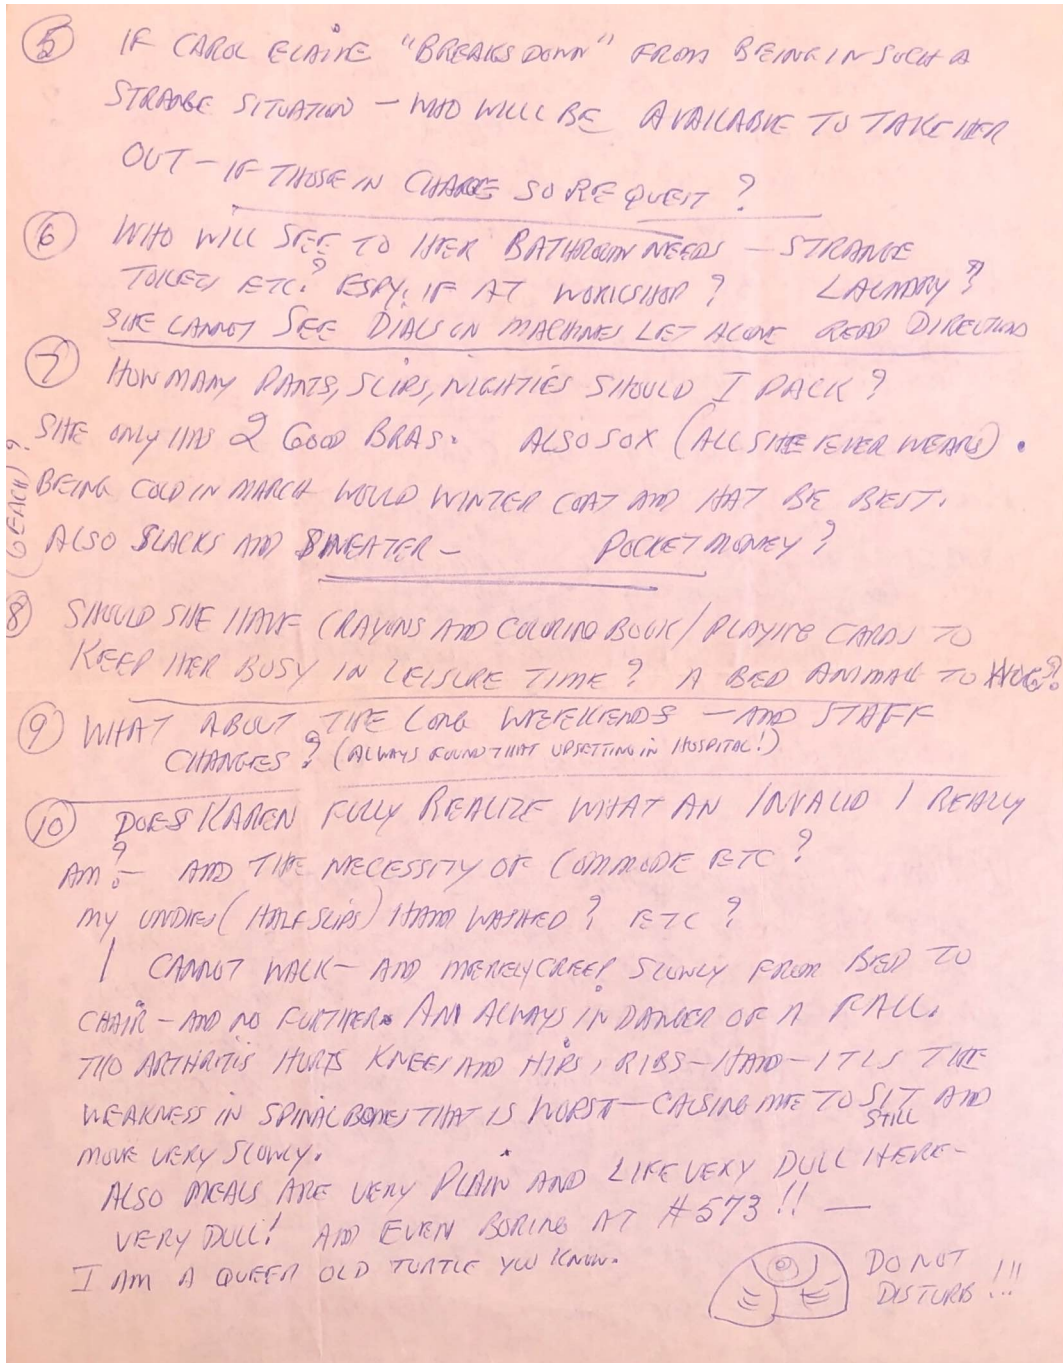 ⑤ IF CAROL ELAINE "BREAKS DOWN" FROM BEING IN SUCH A
STRANGE SITUATION — WHO WILL BE AVAILABLE TO TAKE HER
OUT — IF THOSE IN CHARGE SO REQUEST?
⑥ WHO WILL SEE TO HER BATHROOM NEEDS — STRANGE
TOILETS ETC? ESPY. IF AT WORKSHOP? LAUNDRY?
SHE CANNOT SEE DIALS ON MACHINES LET ALONE READ DIRECTIONS
⑦ HOW MANY PANTS, SLIPS, NIGHTIES SHOULD I PACK?
(6 EACH)?
SHE ONLY HAS 2 GOOD BRAS. ALSO SOX (ALL SHE EVER WEARS).
BEING COLD IN MARCH WOULD WINTER COAT AND HAT BE BEST.
ALSO SLACKS AND SWEATER — POCKET MONEY?
⑧ SHOULD SHE HAVE CRAYONS AND COLORING BOOK/PLAYING CARDS TO
KEEP HER BUSY IN LEISURE TIME? A BED ANIMAL TO HUG?
⑨ WHAT ABOUT THE LONG WEEKENDS — AND STAFF
CHANGES? (ALWAYS FOUND THAT UPSETTING IN HOSPITAL!)
⑩ DOES KAREN FULLY REALIZE WHAT AN INVALID I REALLY
AM? — AND THE NECESSITY OF COMMODE ETC?
MY UNDIES (HALF SLIPS) HAND WASHED? ETC?
I CANNOT WALK — AND MERELY CREEP SLOWLY FROM BED TO
CHAIR — AND NO FURTHER. AM ALWAYS IN DANGER OF A FALL.
THO ARTHRITIS HURTS KNEES AND HIPS, RIBS — HAND — IT IS THE
WEAKNESS IN SPINAL BONES THAT IS WORST — CAUSING ME TO SIT STILL AND
MOVE VERY SLOWLY.
ALSO MEALS ARE VERY PLAIN AND LIFE VERY DULL HERE —
VERY DULL! AND EVEN BORING AT #573!! —
I AM A QUEER OLD TURTLE YOU KNOW.
DO NOT
DISTURB!!!